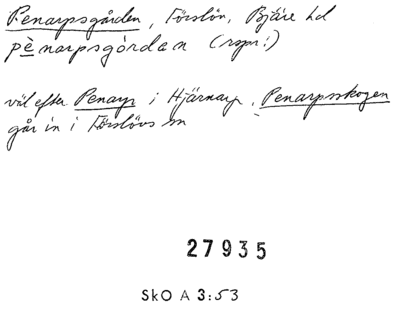 Penarpsgården, Förslöv, Bjäre hd
pènarpsgårdan (rspr:)
väl efter Penarp i Hjärnarp. Penarpsskogen
går in i Förslövs sn
27935
SkO A 3:53